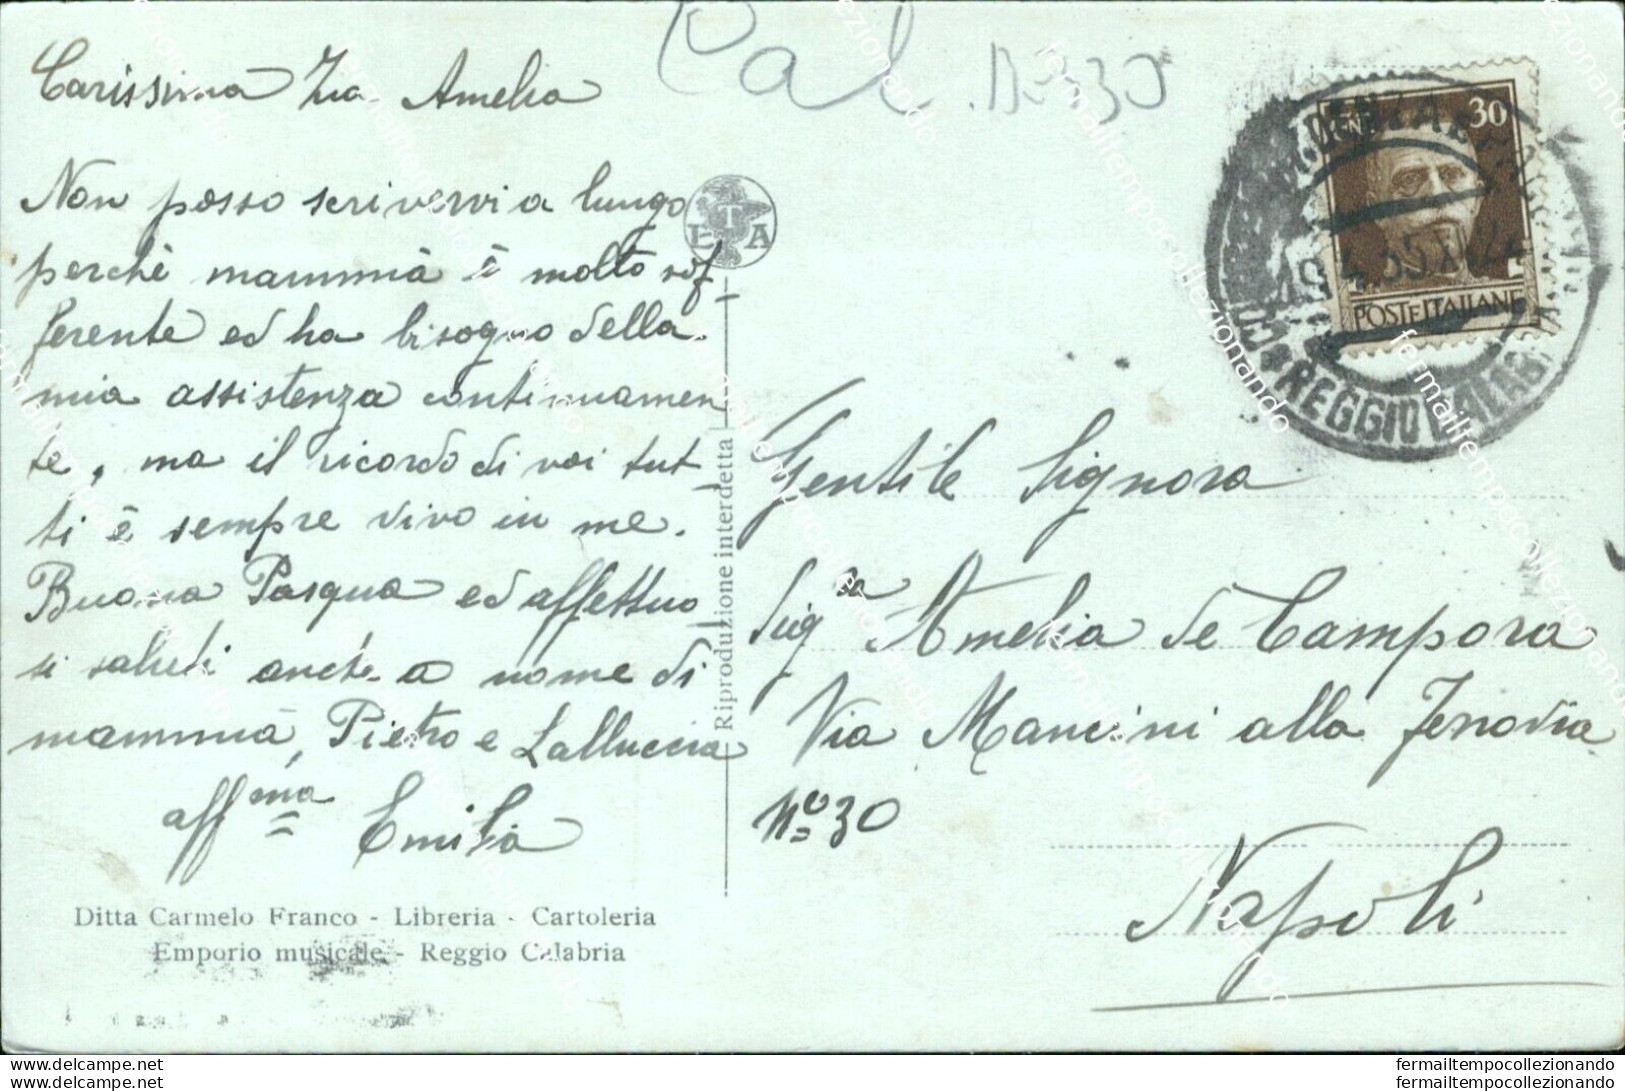 Cal
Carissima Zia Amelia
Non posso scrivervi a lungo
perchè mammà è molto sof-
ferente ed ha bisogno della
mia assistenza continuamen
te, ma il ricordo di voi tut-
ti è sempre vivo in me.
Buona Pasqua ed affettuo
si saluti anche a nome di
mammà, Pietro e Lalluccia
aff.ma
Emilia
Ditta Carmelo Franco - Libreria - Cartoleria
Emporio musicale - Reggio Calabria
ETA
Riproduzione interdetta
30
CENT
POSTE ITALIANE
REGGIO CALAB
Gentile Signora
Sigra Amelia de Campora
Via Mancini alla Ferrovia
No 30
Napoli
fermailtempocollezionando
fermailtempocollezionando
fermailtempocollezionando
fermailtempocollezionando